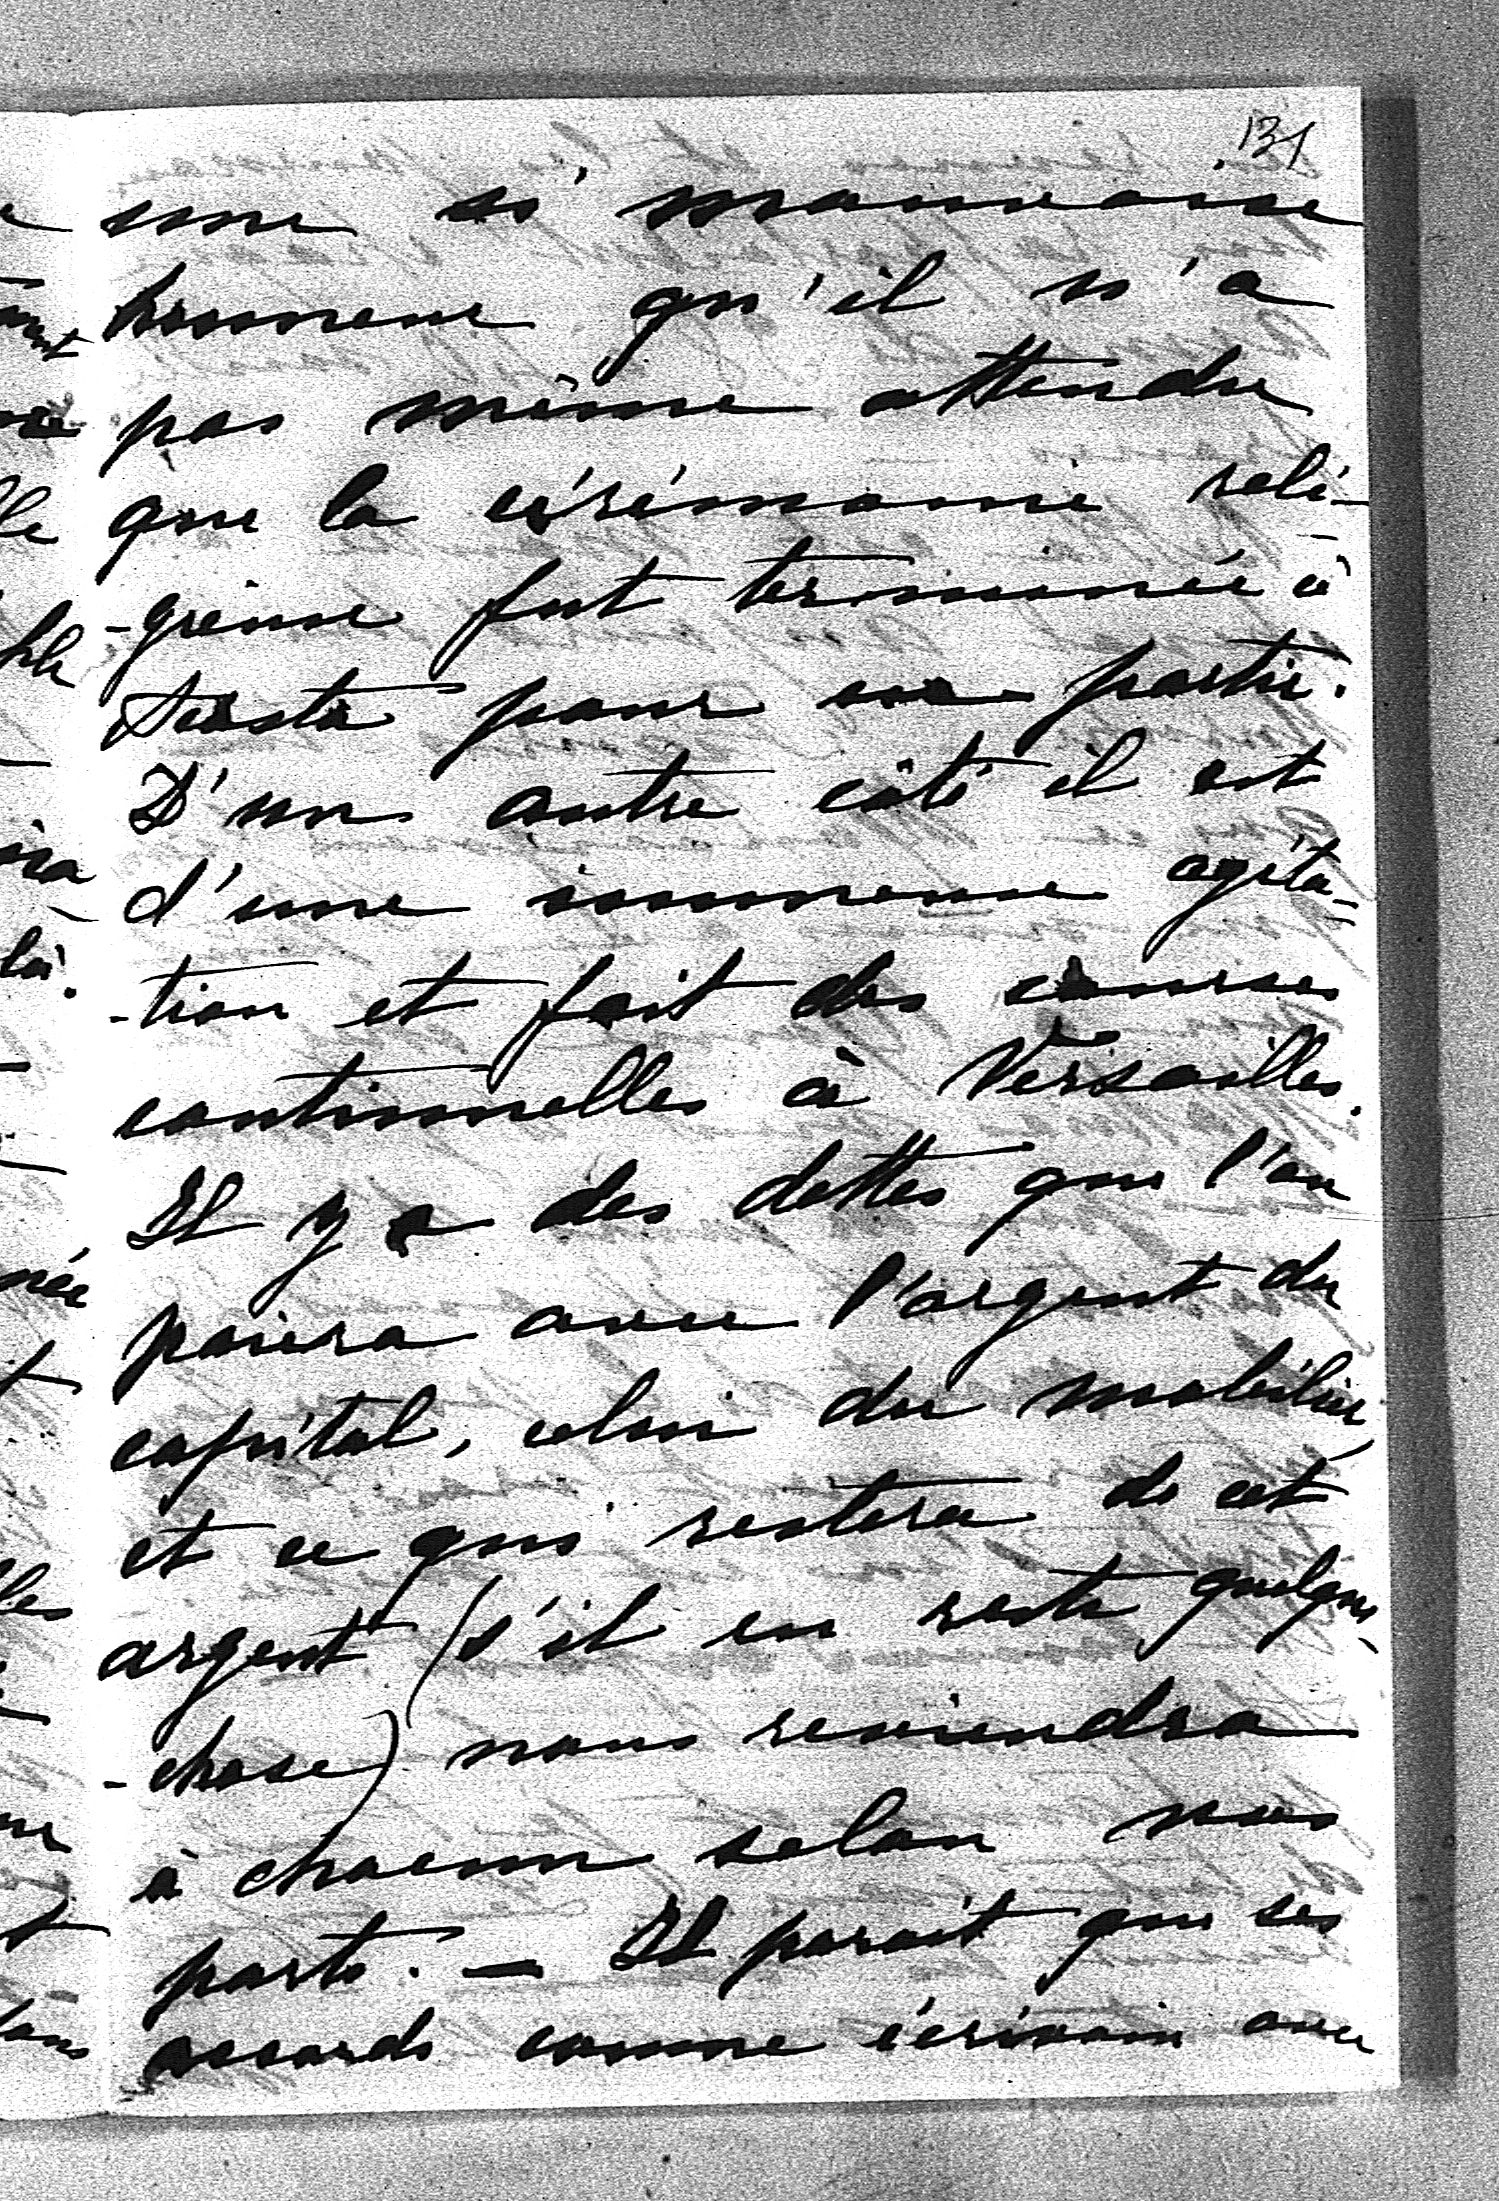 131
une si mauvaise
humeur qu'il n'a
pas même attendu
que la cérémonie reli-
-gieuse fut terminée à
pour en partir.
D'un autre côté il est
d'une immense agita-
-tion et fait des courses
continuelles à Versailles.
Il y a des dettes que l'on
paiera avec l'argent du
capital, celui du mobilier
et ce qui restera de cet
argent (s'il en reste quelque
-chose) nous reviendra
à chacun selon nos
parts. — Il parait que ses
accords comme écrivain avec